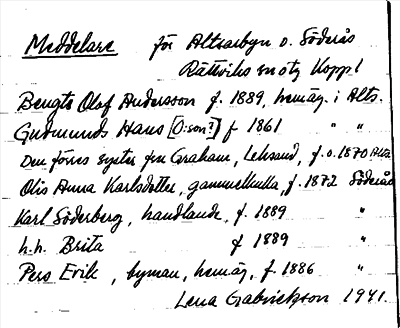 Meddelare för Altsarbyn o. Söderås
Rättviks sn otg Kopp l
Bengts Olof Andersson f. 1889, hemäg. i Alts.
Gudmunds Hans [O:son?] f 1861 " "
Den förres syster fru Graham, Leksand, f. o. 1870 Alts
Olis Anna Karlsdotter, gammelkulla, f. 1872 Söderås
Karl Söderberg, handlande, f. 1889 "
h.h. Brita f 1889 "
Pers Erik, byman, hemäg, f. 1886 "
Lena Gabrielsson 1941.